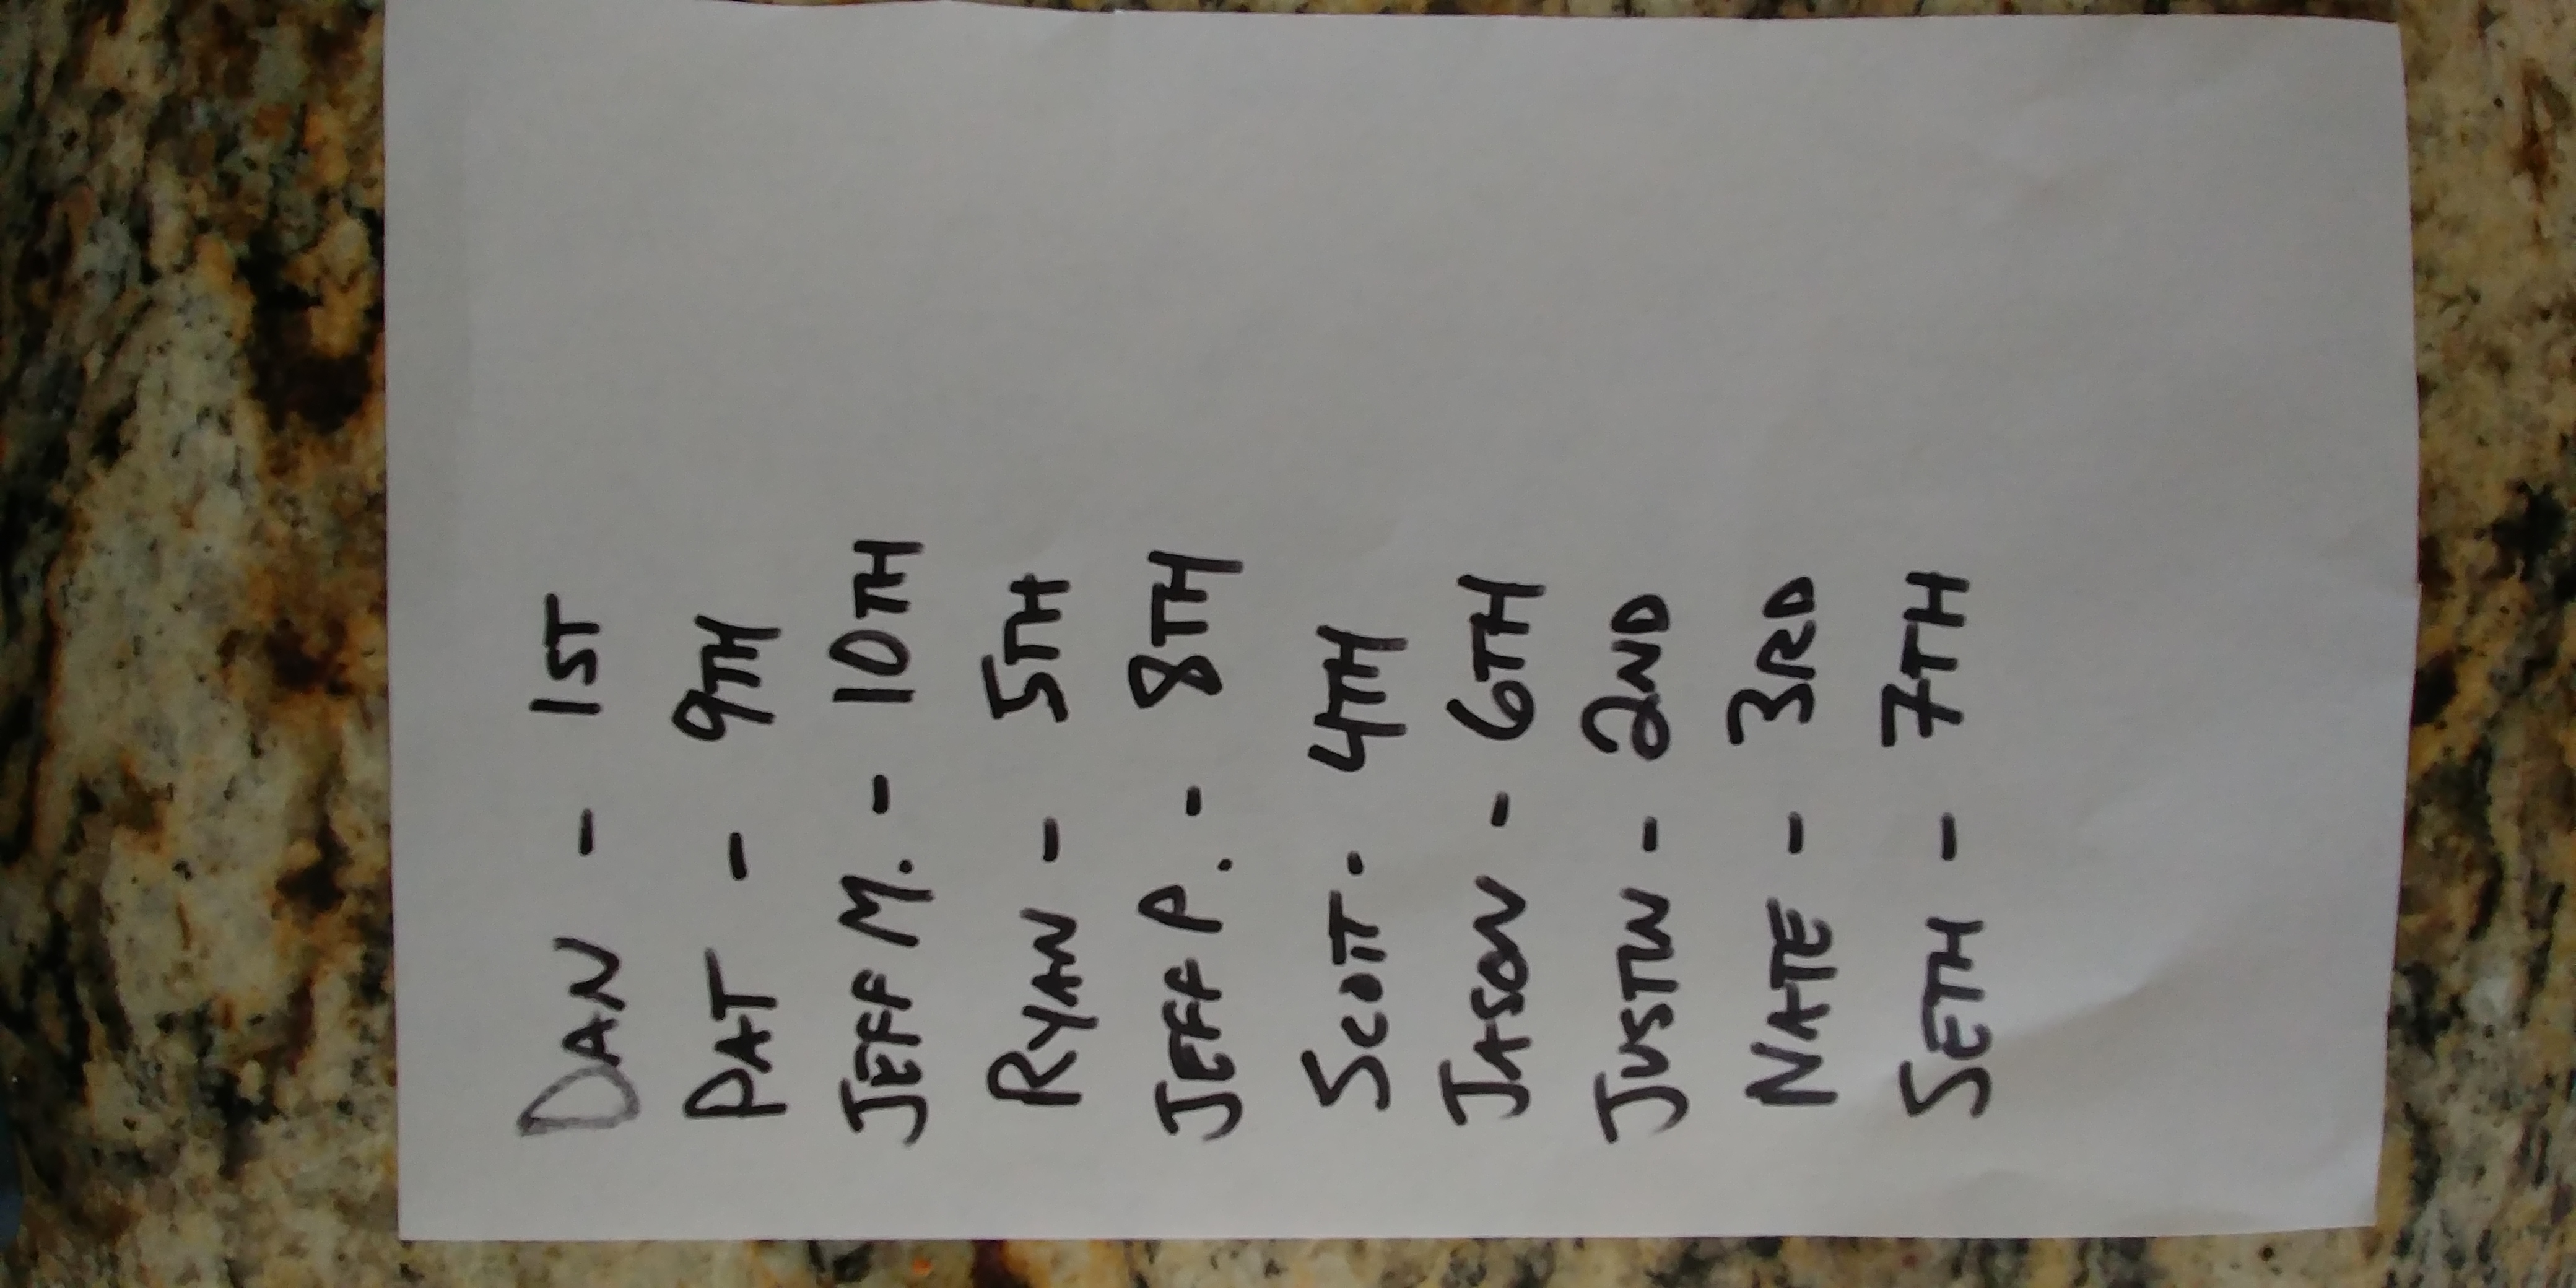 DAN - 1ST
PAT - 9TH
JEFF M. - 10TH
RYAN - 5TH
JEFF P. - 8TH
SCOTT - 4TH
JASON - 6TH
JUSTIN - 2ND
NATE - 3RD
SETH - 7TH